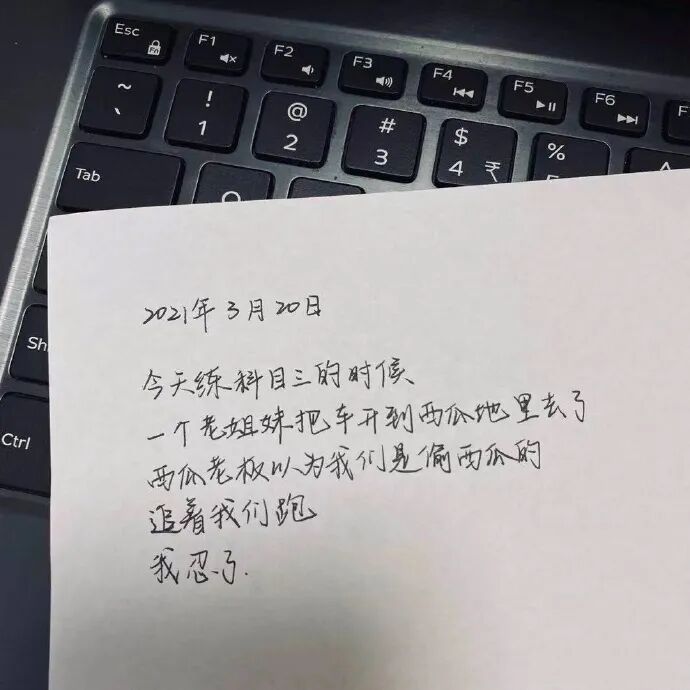 Esc Fn F1 F2 F3 F4 F5 F6
~ ` ! 1 @ 2 # 3 $ 4 ₹ % 5
Tab
Sh
Ctrl
2021年3月20日
今天练科目三的时候
一个老姐妹把车开到西瓜地里去了
西瓜老板以为我们是偷西瓜的
追着我们跑
我忍了.